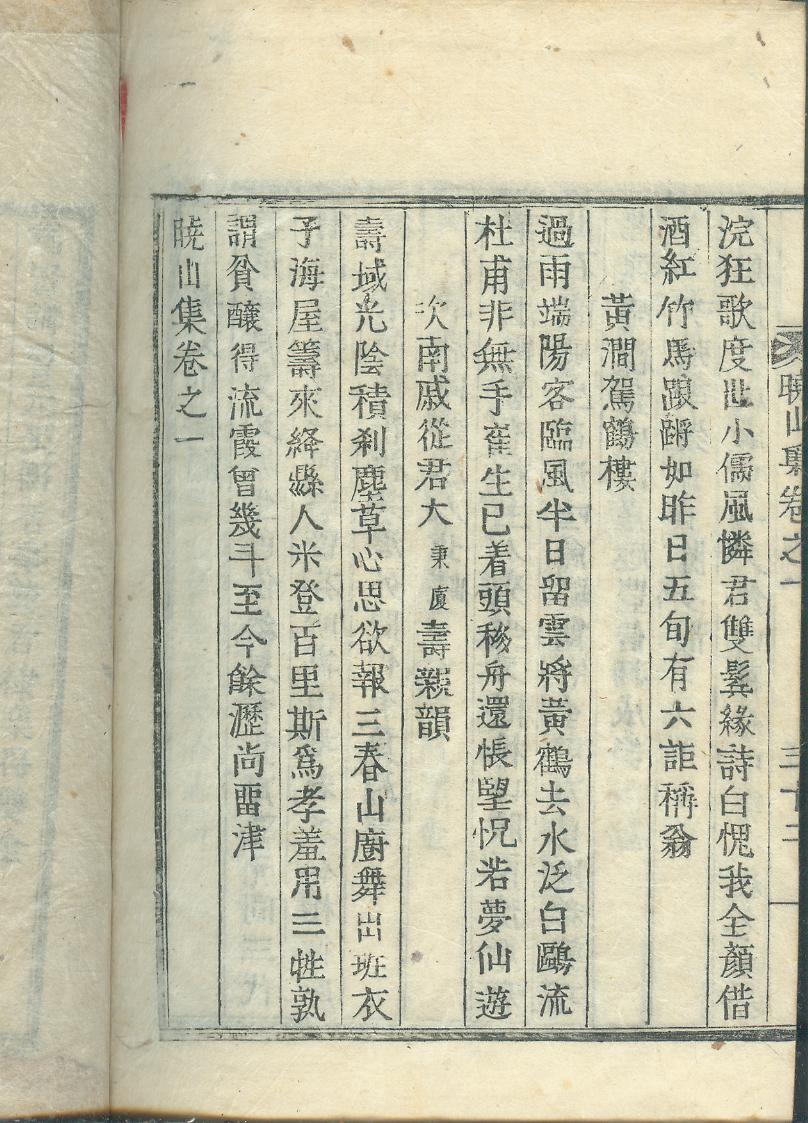 曉山集卷之一
三十二
浣狂歌度世小儒風憐君雙鬂緣詩白愧我全顏借
酒紅竹馬踉蹡如昨日五旬有六詎稱翁
黃澗駕鶴樓
過雨端陽客臨風半日留雲將黃鶴去水泛白鷗流
杜甫非無手崔生已着頭移舟還悵望怳若夢仙遊
次南戚從君大秉廈壽親韻
壽域光陰積刹塵草心思欲報三春山廚舞出班衣
子海屋籌來絳縣人米登百里斯爲孝羞用三牲孰
謂貧釀得流霞曾幾斗至今餘瀝尙留津
曉山集卷之一